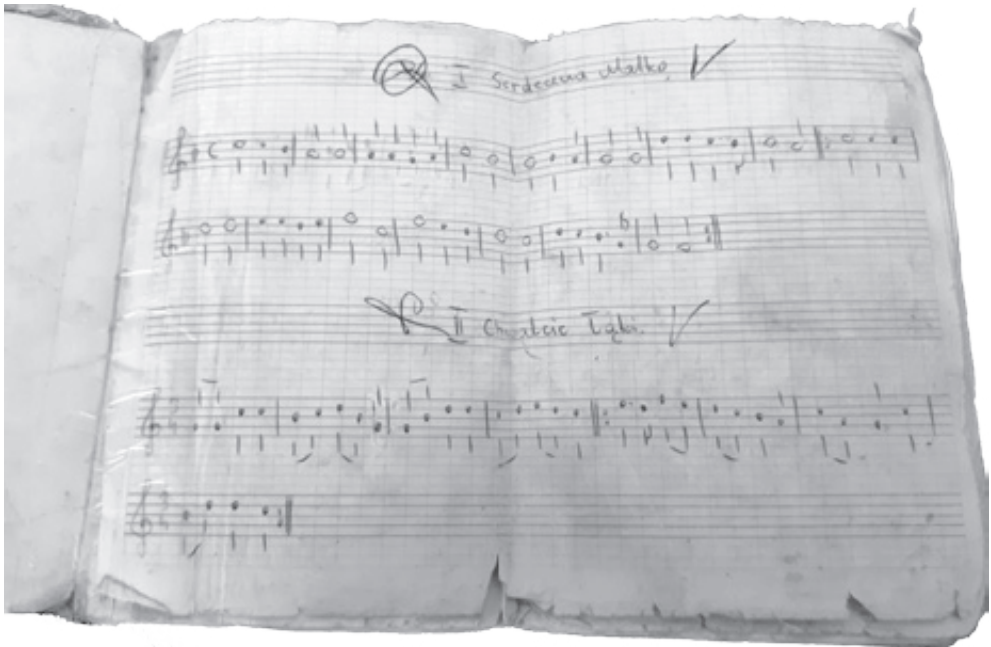 I Serdeczna Matko
II Chwalcie Łąki